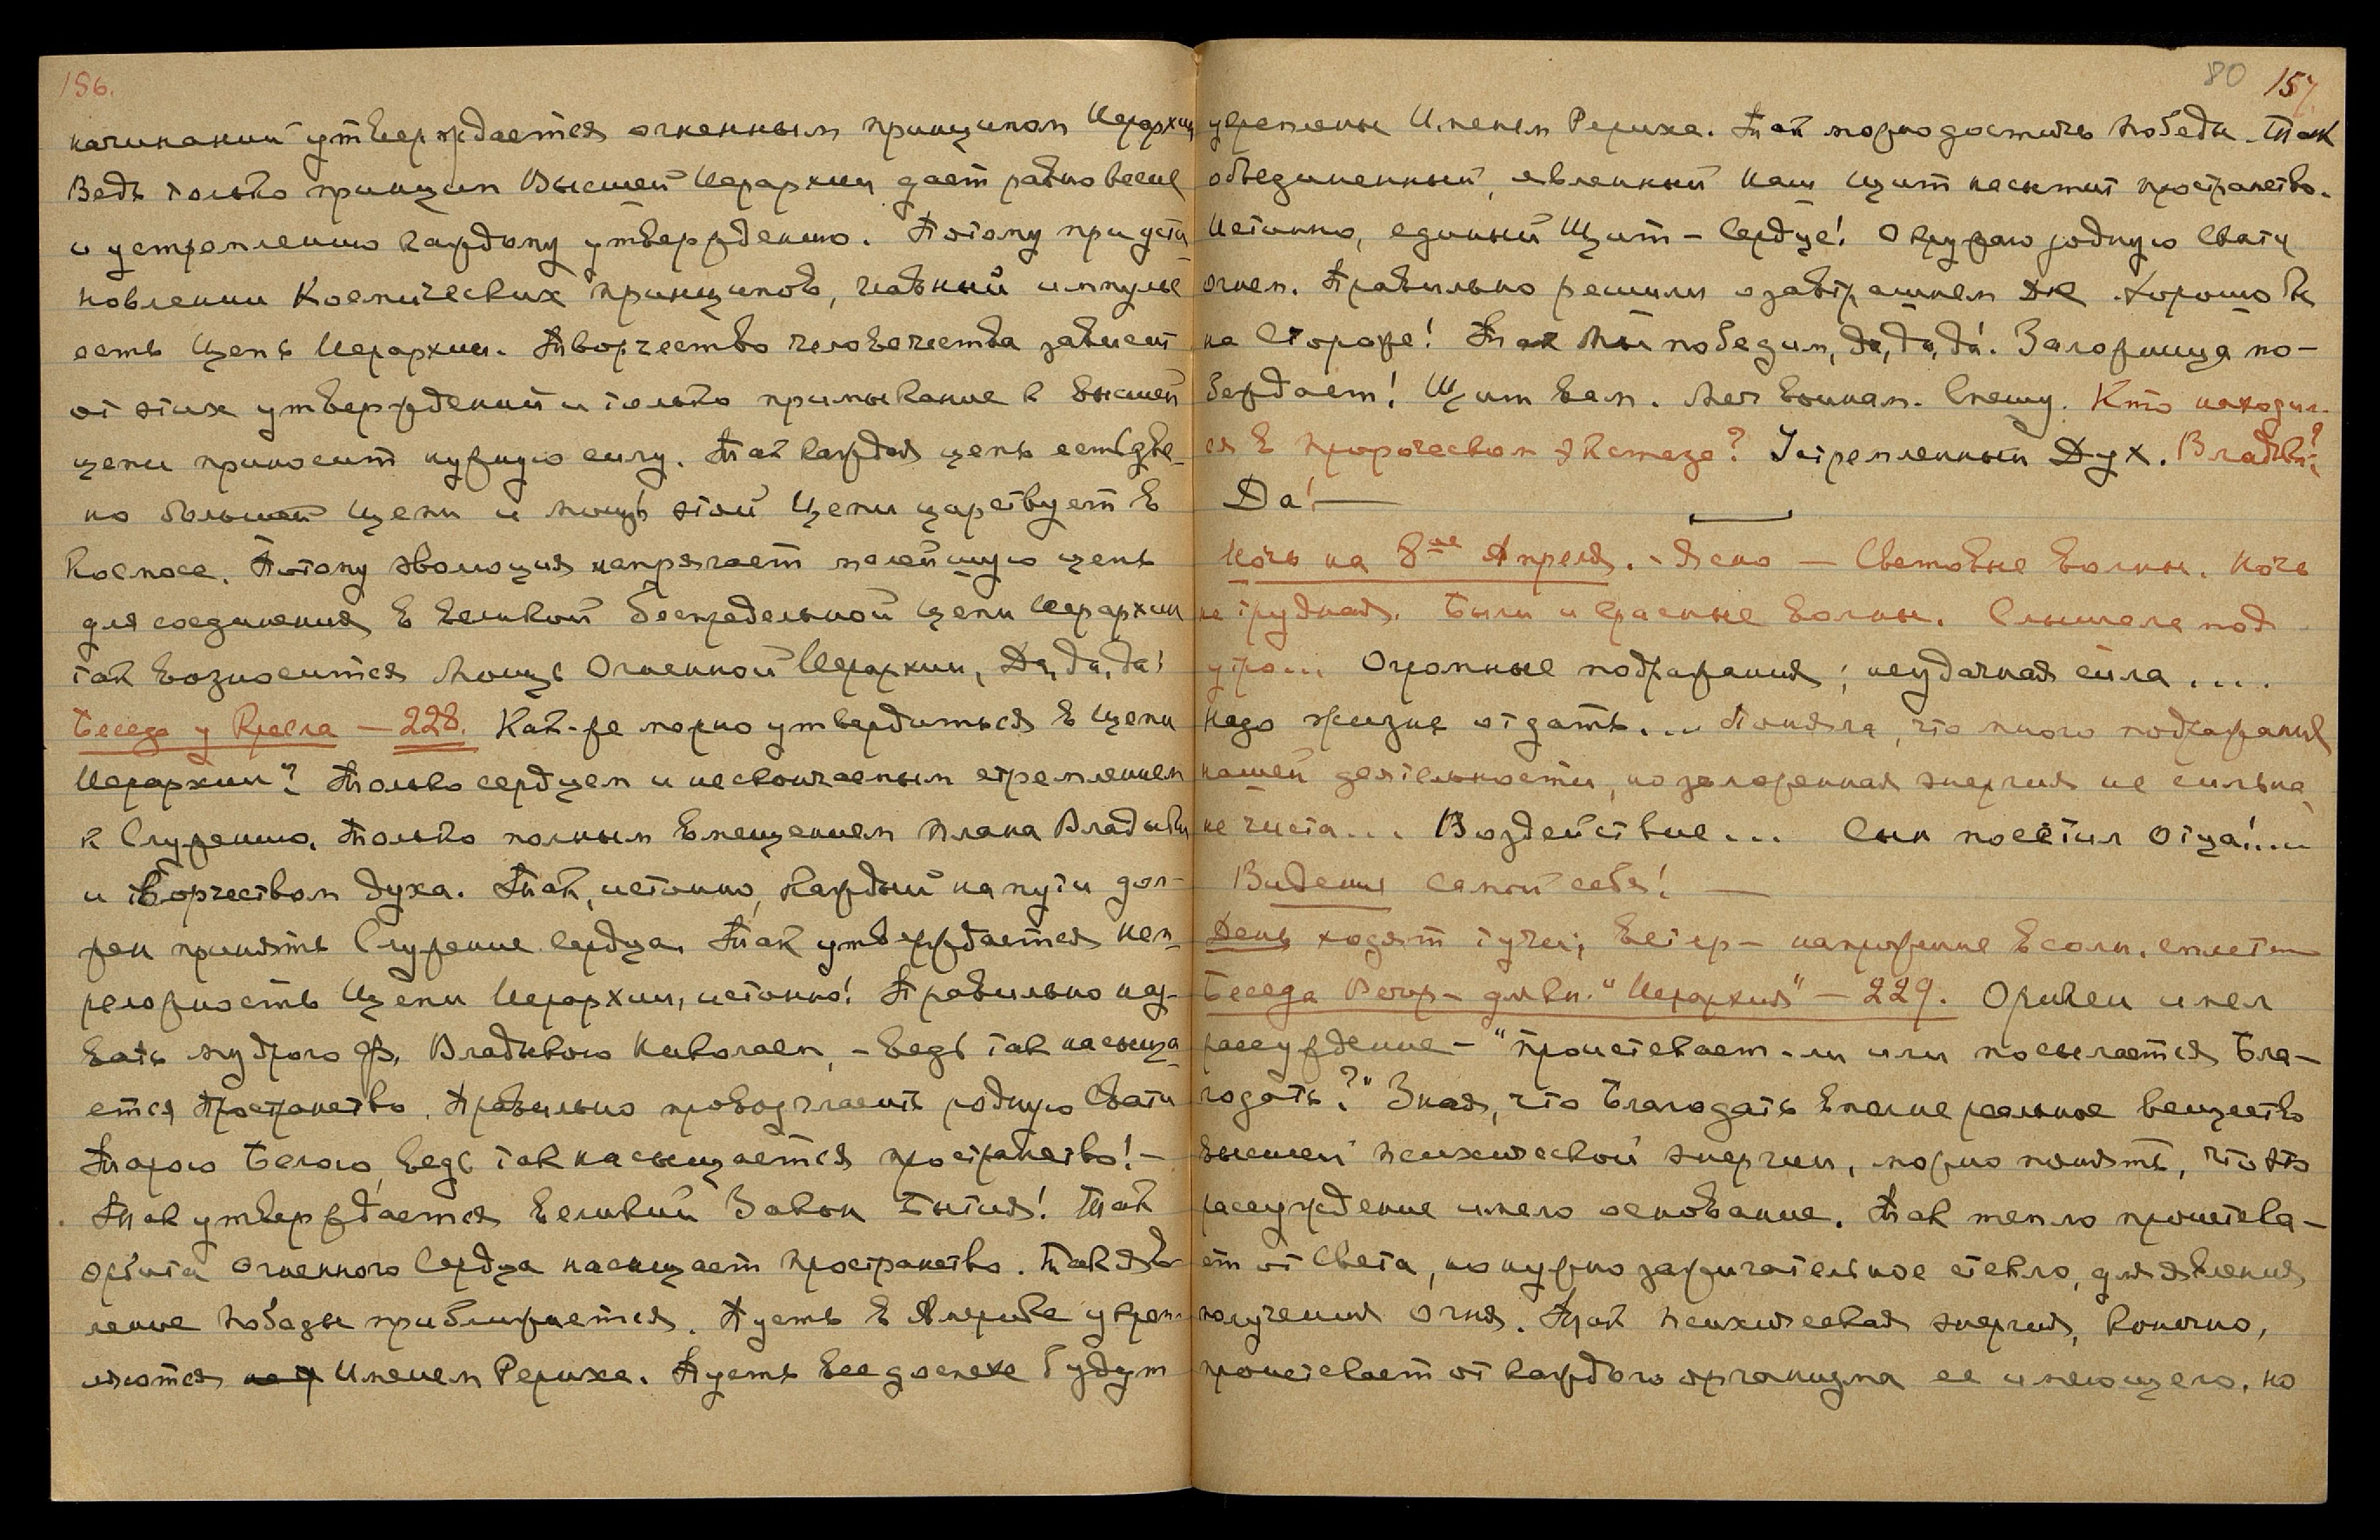 156.
начинаний утверждается огненным принципом Иерархии
Ведь только принцип Высшей Иерархии дает равновесие
и устремлению каждому утверждению. Потому при уста-
новлении Космических принципов, главный импульс
есть Цепь Иерархии. Творчество человечества зависит
от этих утверждений и только примыкание к высшей
цепи приносит нужную силу. Так каждая цепь есть зве-
но большой Цепи и мощь этой Цепи царствует в
Космосе. Потому эволюция напрягает малейшую цепь
для соединения в великой беспредельной цепи Иерархии
так возносится Мощь Огненной Иерархии, Да, да, да!
Беседа у Кресла — 228. Как-же можно утвердиться в Цепи
Иерархии? Только сердцем и нескончаемым стремлением
к Служению. Только полным вмещением Плана Владыки
и творчеством духа. Так, истинно, каждый на пути дол-
жен принять Служение сердца. Так утверждается неп-
реложность Цепи Иерархии, истинно! Правильно наз-
вать мудрого Ф. Владыкою Николаем, - ведь так насыща-
ется Пространство. Правильно провозгласить родную Свати
Тарою Белою, ведь так насыщается пространство! —
Так утверждается Великий Закон Бытия! Так
орбита Огненного Сердца насыщает Пространство. Так яв-
ление Победы приближается. Пусть в Америке укреп-
ляются Именем Рериха. Пусть все доспехи будут
80 157.
укреплены Именем Рериха. Так можно достичь Победы. Так
объединенный, явленный наш Щит насытит пространство.
Истинно, единый Щит — Сердце! Окружаю родную Свати
огнем. Правильно решили о завтрашнем дне. Хорошо
на Стороже! Так Мы победим, да, да, да! Заложница по-
беждает! Щит вам. Меч воинам. Спешу. Кто находил-
ся в пророческом экстазе? Устремленный Дух. Владыки?
Да! —
Ночь на 8ое Апреля. - Ясно — Световые волны. Ночь
не трудная. Были и красные волны. Слышала под
утро... Огромные подражания; неудачная сила ....
Надо жизнь отдать... Поняла, что много подражаний
нашей деятельности, но заложенная энергия не сильна,
не чиста... Воздействие... Сын посетил Отца!...
Видение самой себя! —
День ходят тучи; ветер — напряжение в солн. сплетен.
Беседа Вечер — для кн. "Иерархия" — 229. Ориген имел
рассуждение — "проистекает-ли или посылается Бла-
годать?" Зная, что Благодать вполне реальное вещество
высшей психической энергии, можно понять, что это
рассуждение имело основание. Так тепло проистека-
ет от Света, но нужно зажигательное стекло, для явления
получения огня. Так психическая энергия, конечно,
проистекает от каждого организма ее имеющего, но